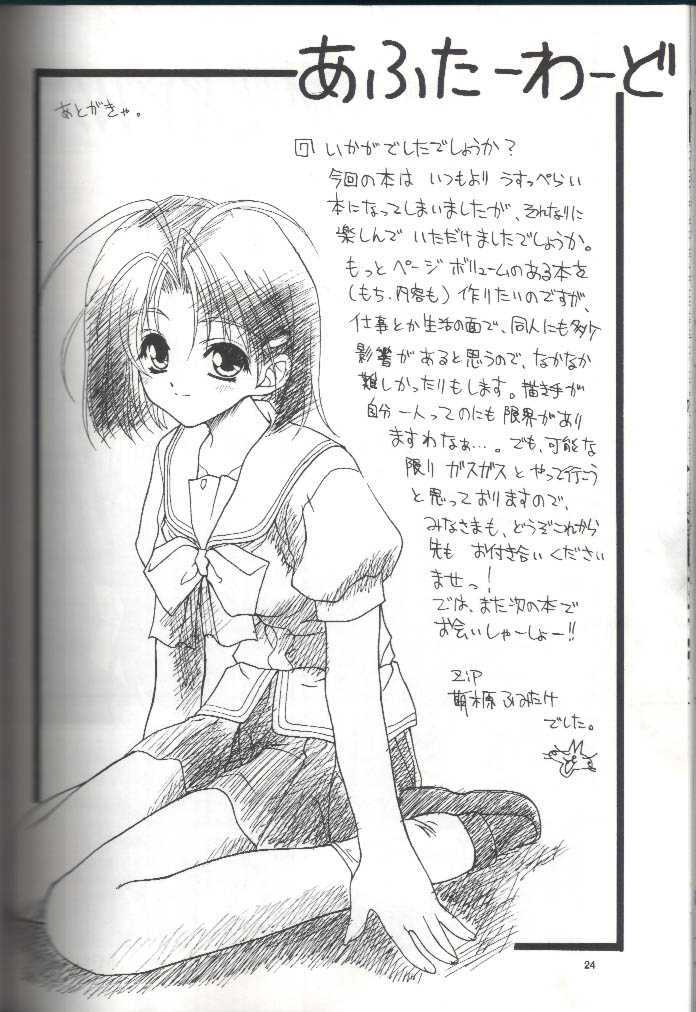 あふたーわーど
あとがきゃ。
いかがでしたでしょうか?
今回の本は いつもより うすっぺらい
本になってしまいましたが、それなりに
楽しんで いただけましたでしょうか。
もっと ページ ボリュームのある本を
(もち、内容も) 作りたいのですが、
仕事とか生活の面で、同人にも多少
影響があると思うので、なかなか
難しかったりもします。描き手が
自分一人ってのにも 限界があり
ますわなぁ…。でも、可能な
限り ガスガスと やって行こう
と思っておりますので、
みなさまも、どうぞこれから
先も お付き合い ください
ませっ!
では、また次の本で
お会いしゃーしょー!!
ZiP
萌木原 ふみたけ
でした。
24